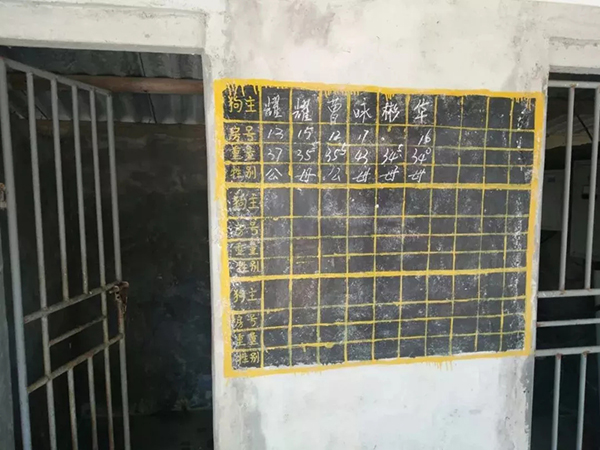 狗主 耀 耀 曹 咏 彬 华
房号 13 15 12 17 16
重量 37 35⁵ 35⁵ 43 34⁵ 34⁰
性别 公 母 公 母 母 母
狗主
房号
重量
性别
狗主
房号
重量
性别